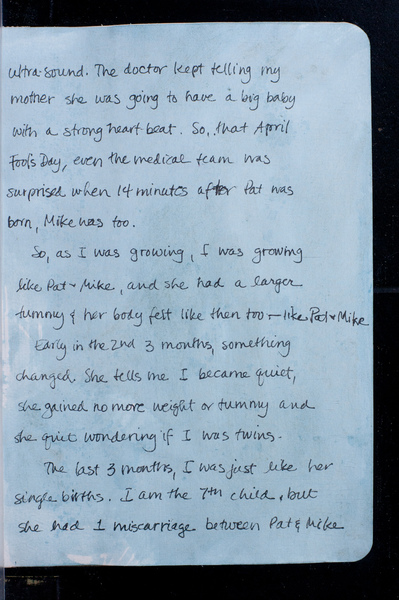 ultra-sound. The doctor kept telling my
mother she was going to have a big baby
with a strong heart beat. So, that April
Fool's Day, even the medical team was
surprised when 14 minutes after Pat was
born, Mike was too.
So, as I was growing, I was growing
like Pat & Mike, and she had a larger
tummy & her body felt like then too — like Pat & Mike
Early in the 2nd 3 months, something
changed. She tells me I became quiet,
she gained no more weight or tummy and
she quit wondering if I was twins.
The last 3 months, I was just like her
single births. I am the 7th child, but
she had 1 miscarriage between Pat & Mike